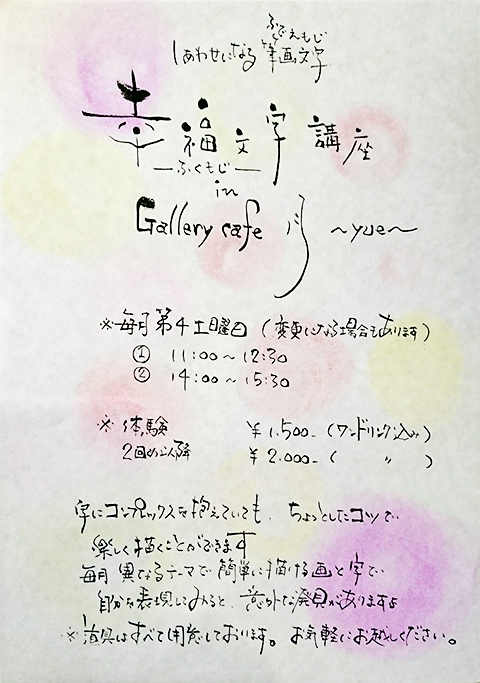 しあわせになる筆画文字
ふでえもじ
幸福文字 講座
ーふくもじー
in
Gallery cafe 月 〜yue〜
※毎月第4土曜日(変更になる場合もあります)
① 11:00〜12:30
② 14:00〜15:30
※体験 ¥1,500-(ワンドリンク込み)
2回め以降 ¥2,000-( 〃 )
字にコンプレックスを抱えていても、ちょっとしたコツで
楽しく描くことができます
毎月異なるテーマで簡単に描ける画と字で
自分を表現してみると、意外な発見がありますよ
※道具はすべて用意しております。お気軽にお越しください。